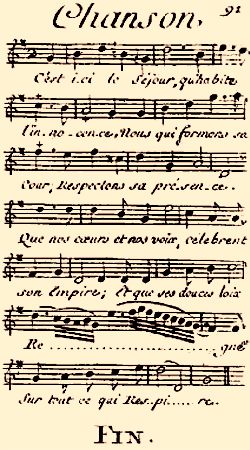 Chanson.
91
C'est ici le Séjour, qu'habite
l'in.no.cence, Nous qui formons sa
Cour, Respectons sa présence.
Que nos cœurs et nos voix, célebrent
son Empire; Et que ses douces loix
Re ... gnēt
Sur tout ce qui Res.pi.....re.
FIN.